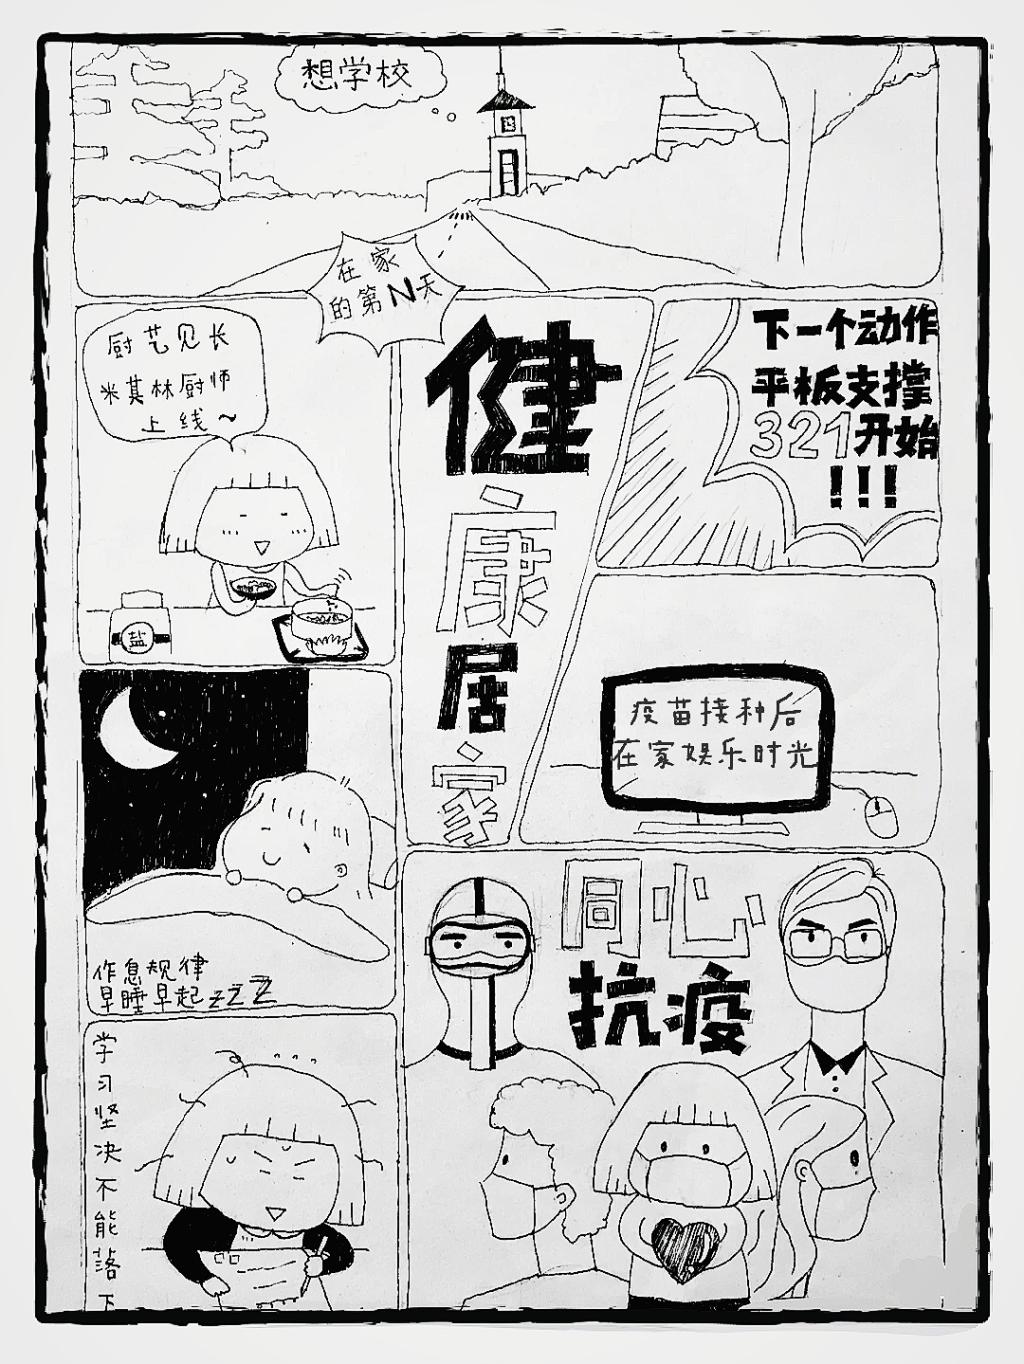 想学校
在家
的第N天
厨艺见长
米其林厨师
上线~
盐
健
康
居
家
下一个动作
平板支撑
321开始
!!!
疫苗接种后
在家娱乐时光
作息规律
早睡早起zZZ
同心
抗疫
学
习
坚
决
不
能
落
下